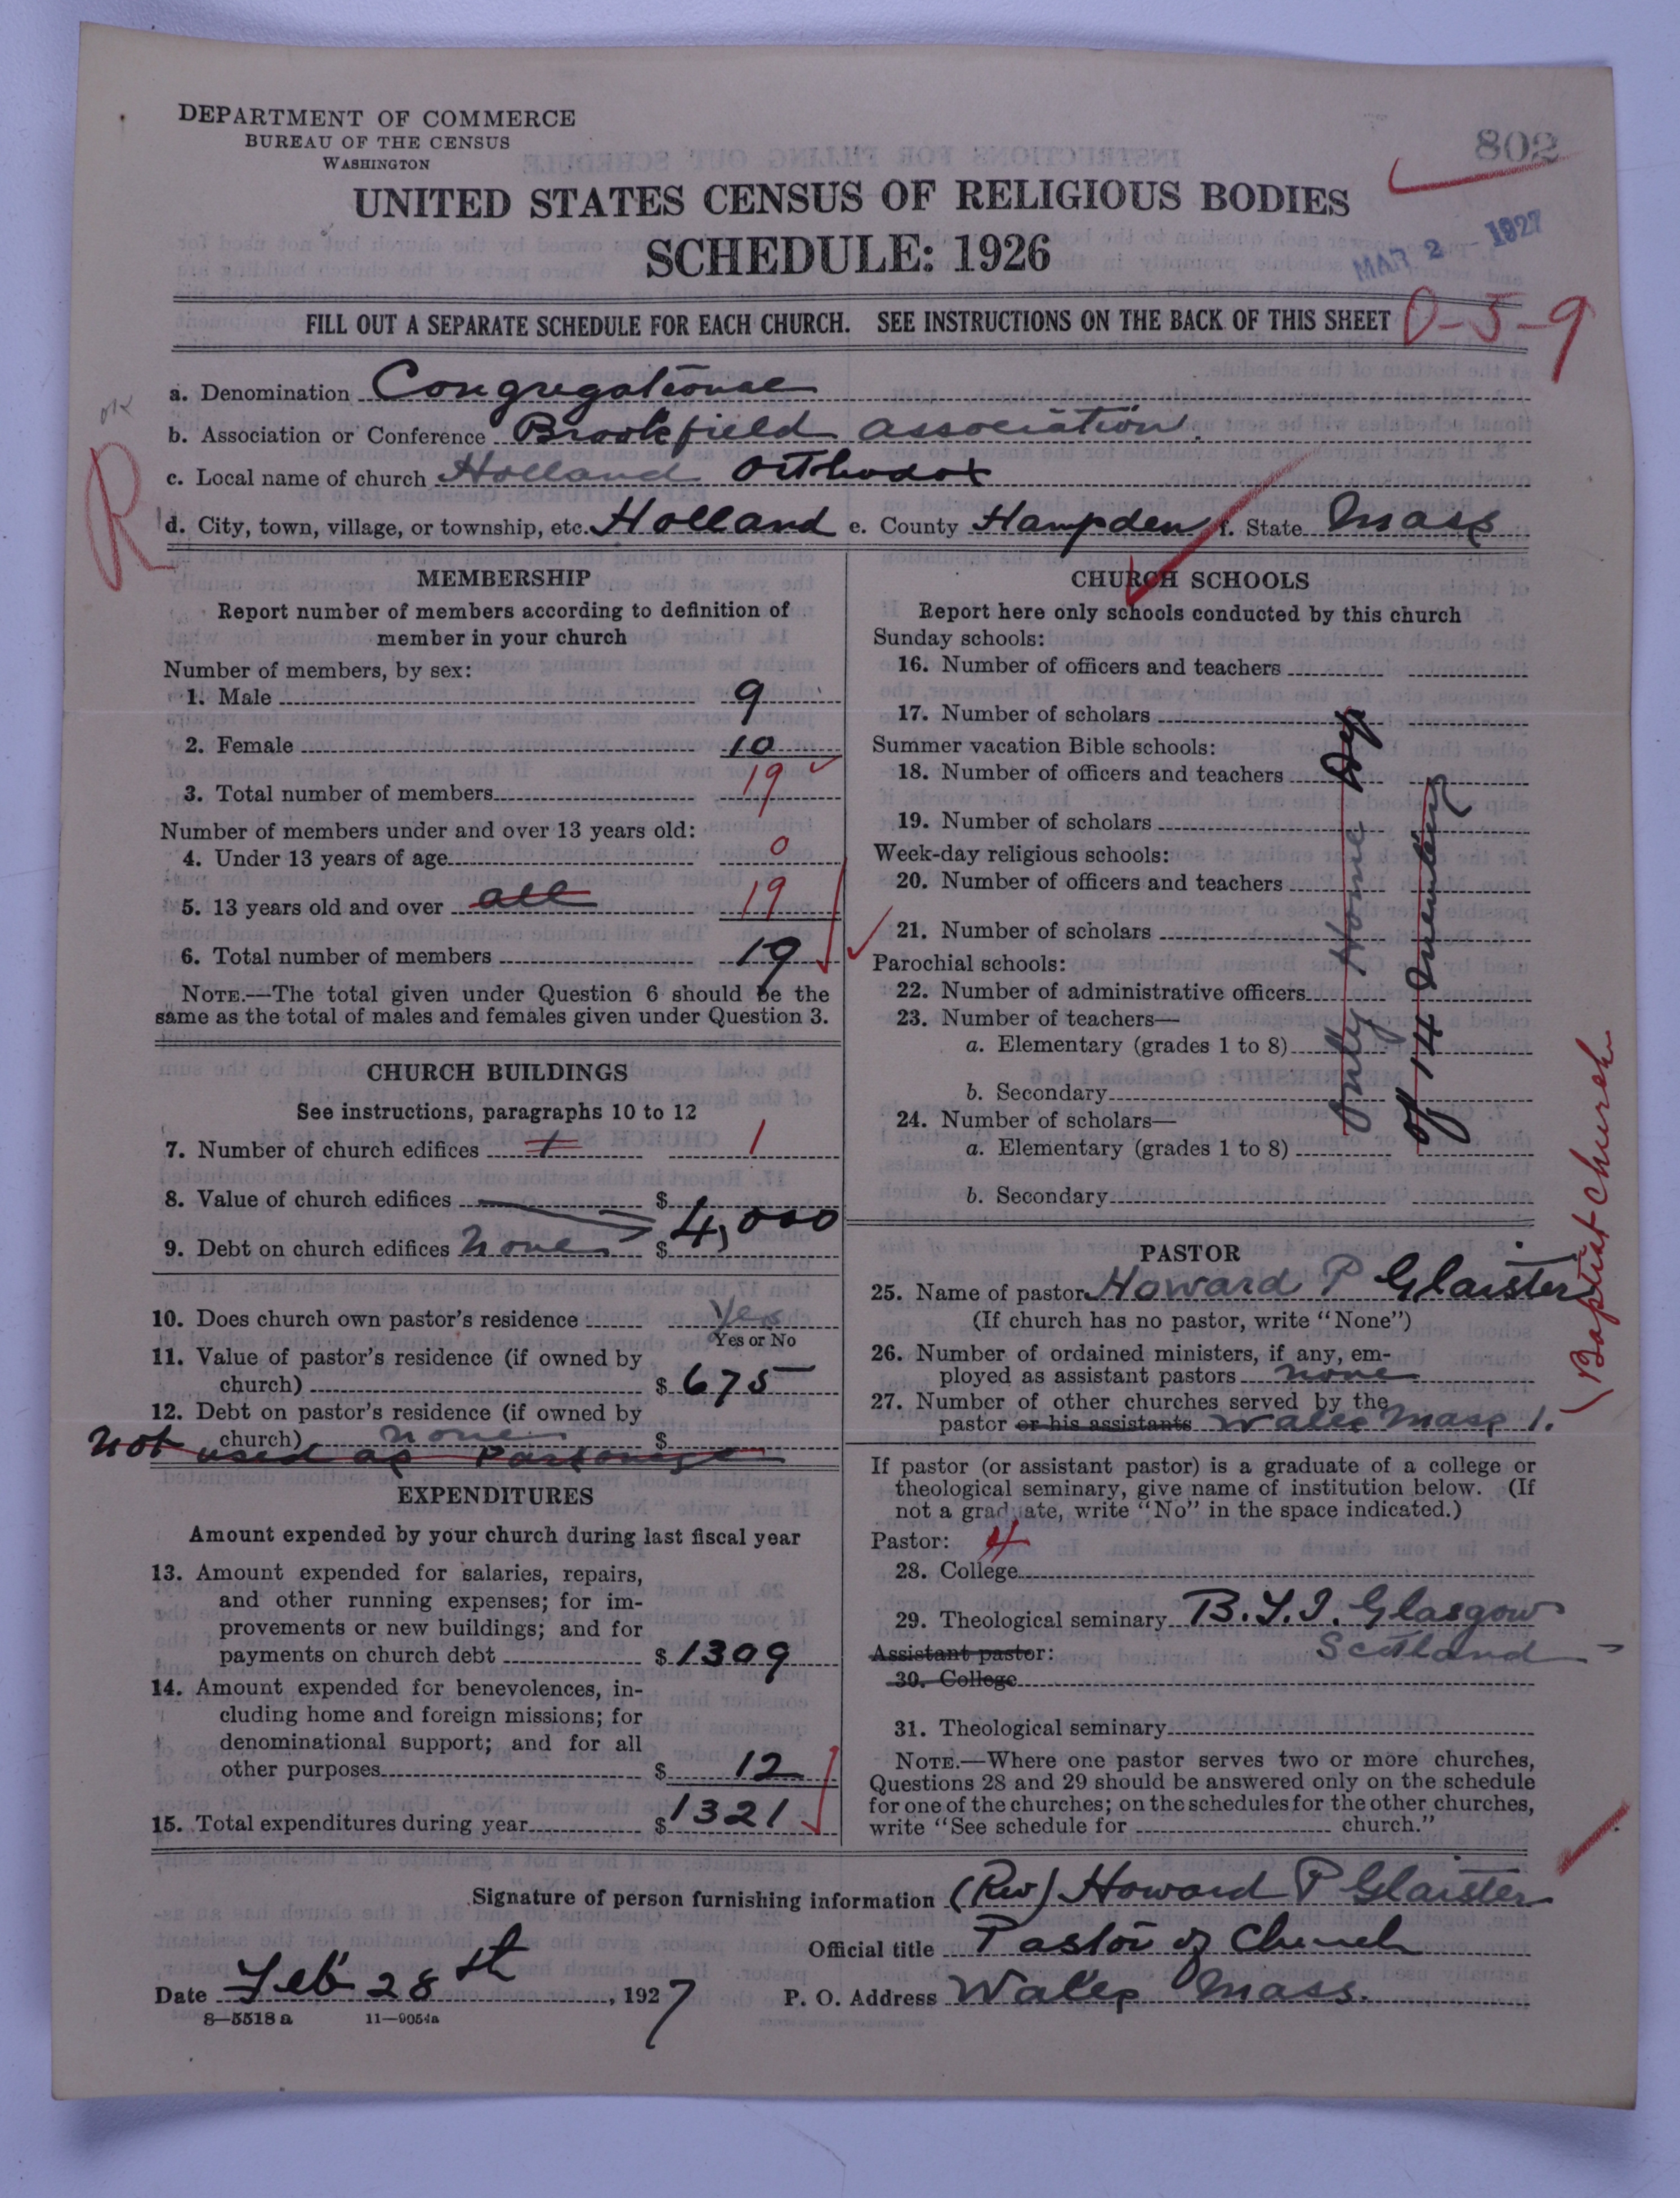 DEPARTMENT OF COMMERCE
BUREAU OF THE CENSUS
WASHINGTON
802
UNITED STATES CENSUS OF RELIGIOUS BODIES
SCHEDULE: 1926
MAR 2 - 1927
FILL OUT A SEPARATE SCHEDULE FOR EACH CHURCH. SEE INSTRUCTIONS ON THE BACK OF THIS SHEET
0-5-9
a. Denomination Congregational
ok
b. Association or Conference Brookfield association.
R
c. Local name of church Holland Orthodox
d. City, town, village, or township, etc. Holland e. County Hampden f. State Mass
MEMBERSHIP
Report number of members according to definition of
member in your church
Number of members, by sex:
1. Male 9
2. Female 10
3. Total number of members 19
Number of members under and over 13 years old:
4. Under 13 years of age 0
5. 13 years old and over all 19
6. Total number of members 19
NOTE.—The total given under Question 6 should be the
same as the total of males and females given under Question 3.
CHURCH BUILDINGS
See instructions, paragraphs 10 to 12
7. Number of church edifices 1 1
8. Value of church edifices $ 4,000
9. Debt on church edifices None $
10. Does church own pastor's residence Yes
Yes or No
11. Value of pastor's residence (if owned by
church) $ 675
12. Debt on pastor's residence (if owned by
church) none $
Not used as Parsonage
EXPENDITURES
Amount expended by your church during last fiscal year
13. Amount expended for salaries, repairs,
and other running expenses; for im-
provements or new buildings; and for
payments on church debt $ 1309
14. Amount expended for benevolences, in-
cluding home and foreign missions; for
denominational support; and for all
other purposes $ 12
15. Total expenditures during year $ 1321
CHURCH SCHOOLS
Report here only schools conducted by this church
Sunday schools:
16. Number of officers and teachers
17. Number of scholars
Summer vacation Bible schools:
18. Number of officers and teachers
19. Number of scholars
Week-day religious schools:
20. Number of officers and teachers
21. Number of scholars
Parochial schools:
22. Number of administrative officers
23. Number of teachers—
a. Elementary (grades 1 to 8)
b. Secondary
24. Number of scholars—
a. Elementary (grades 1 to 8)
b. Secondary
Only Home Dep
of 14 members
PASTOR
25. Name of pastor Howard P Glaister
(If church has no pastor, write "None")
26. Number of ordained ministers, if any, em-
ployed as assistant pastors none
27. Number of other churches served by the
pastor or his assistants Wales Mass 1.
(Baptist Church
If pastor (or assistant pastor) is a graduate of a college or
theological seminary, give name of institution below. (If
not a graduate, write "No" in the space indicated.)
Pastor:
28. College
29. Theological seminary B.T.I. Glasgow
Assistant pastor: Scotland
30. College
31. Theological seminary
NOTE.—Where one pastor serves two or more churches,
Questions 28 and 29 should be answered only on the schedule
for one of the churches; on the schedules for the other churches,
write "See schedule for church."
Signature of person furnishing information (Rev) Howard P Glaister
Official title Pastor of Church
Date Feb 28th, 1927 P. O. Address Wales Mass.
8—5518 a 11—9054a